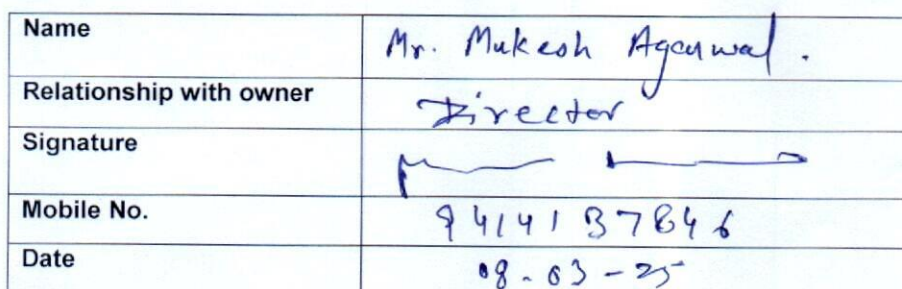 Name Mr. Mukesh Agarwal.
Relationship with owner Director
Signature
Mobile No. 9414137846
Date 08-03-25